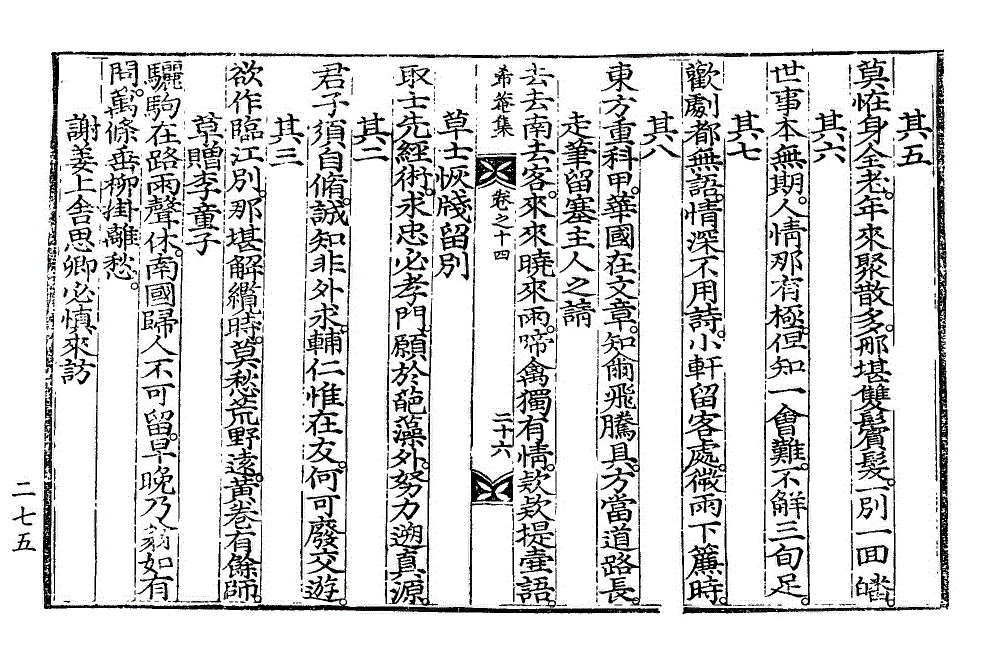 其五
莫怪身全老。年來聚散多。那堪雙鬢髮。一別一回皤。
其六
世事本無期。人情那有極。但知一會難。不解三旬足。
其七
歡劇都無語。情深不用詩。小軒留客處。微雨下簾時。
其八
東方重科甲。華國在文章。知爾飛騰具。方當道路長。
走筆留塞主人之請
去去南去客。來來曉來雨。啼禽獨有情。款款提壺語。
希菴集 卷之十四 二十六
草士恢牋留別
取士先經術。求忠必孝門。願於葩藻外。努力遡真源。
其二
君子須自脩。誠知非外求。輔仁惟在友。何可廢交遊。
其三
欲作臨江別。那堪解纜時。莫愁荒野遠。黃卷有餘師。
草贈李童子
驪駒在路雨聲休。南國歸人不可留。早晚乃翁如有
問。萬條垂柳掛離愁。
謝姜上舍思卿必慎來訪
二七五